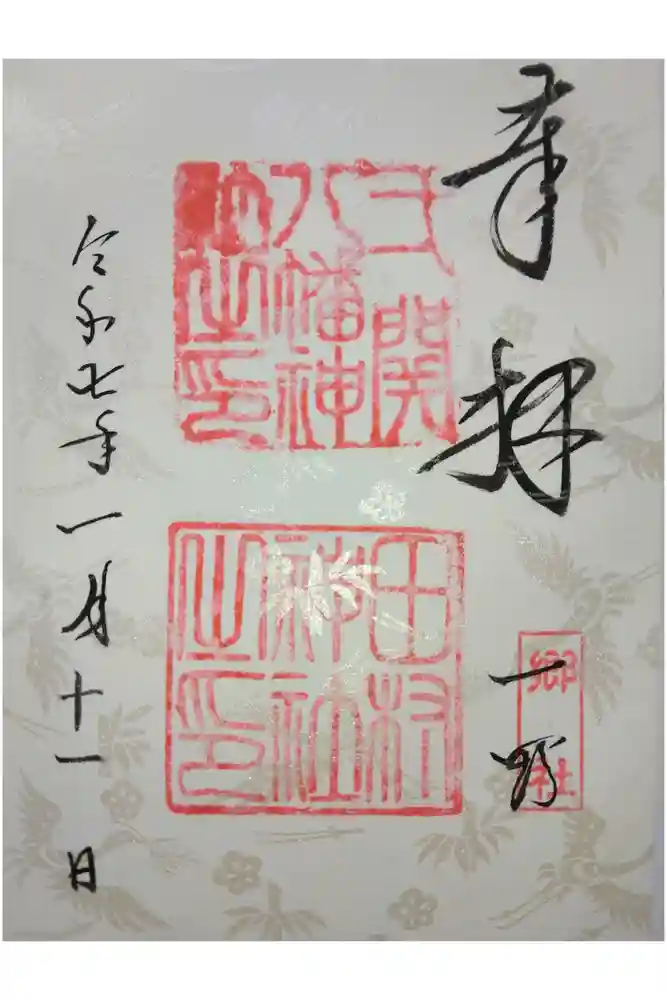 奉拝
郷社
一野
八幡神
社之印
田村
神社
之印
令和七年一月十一日